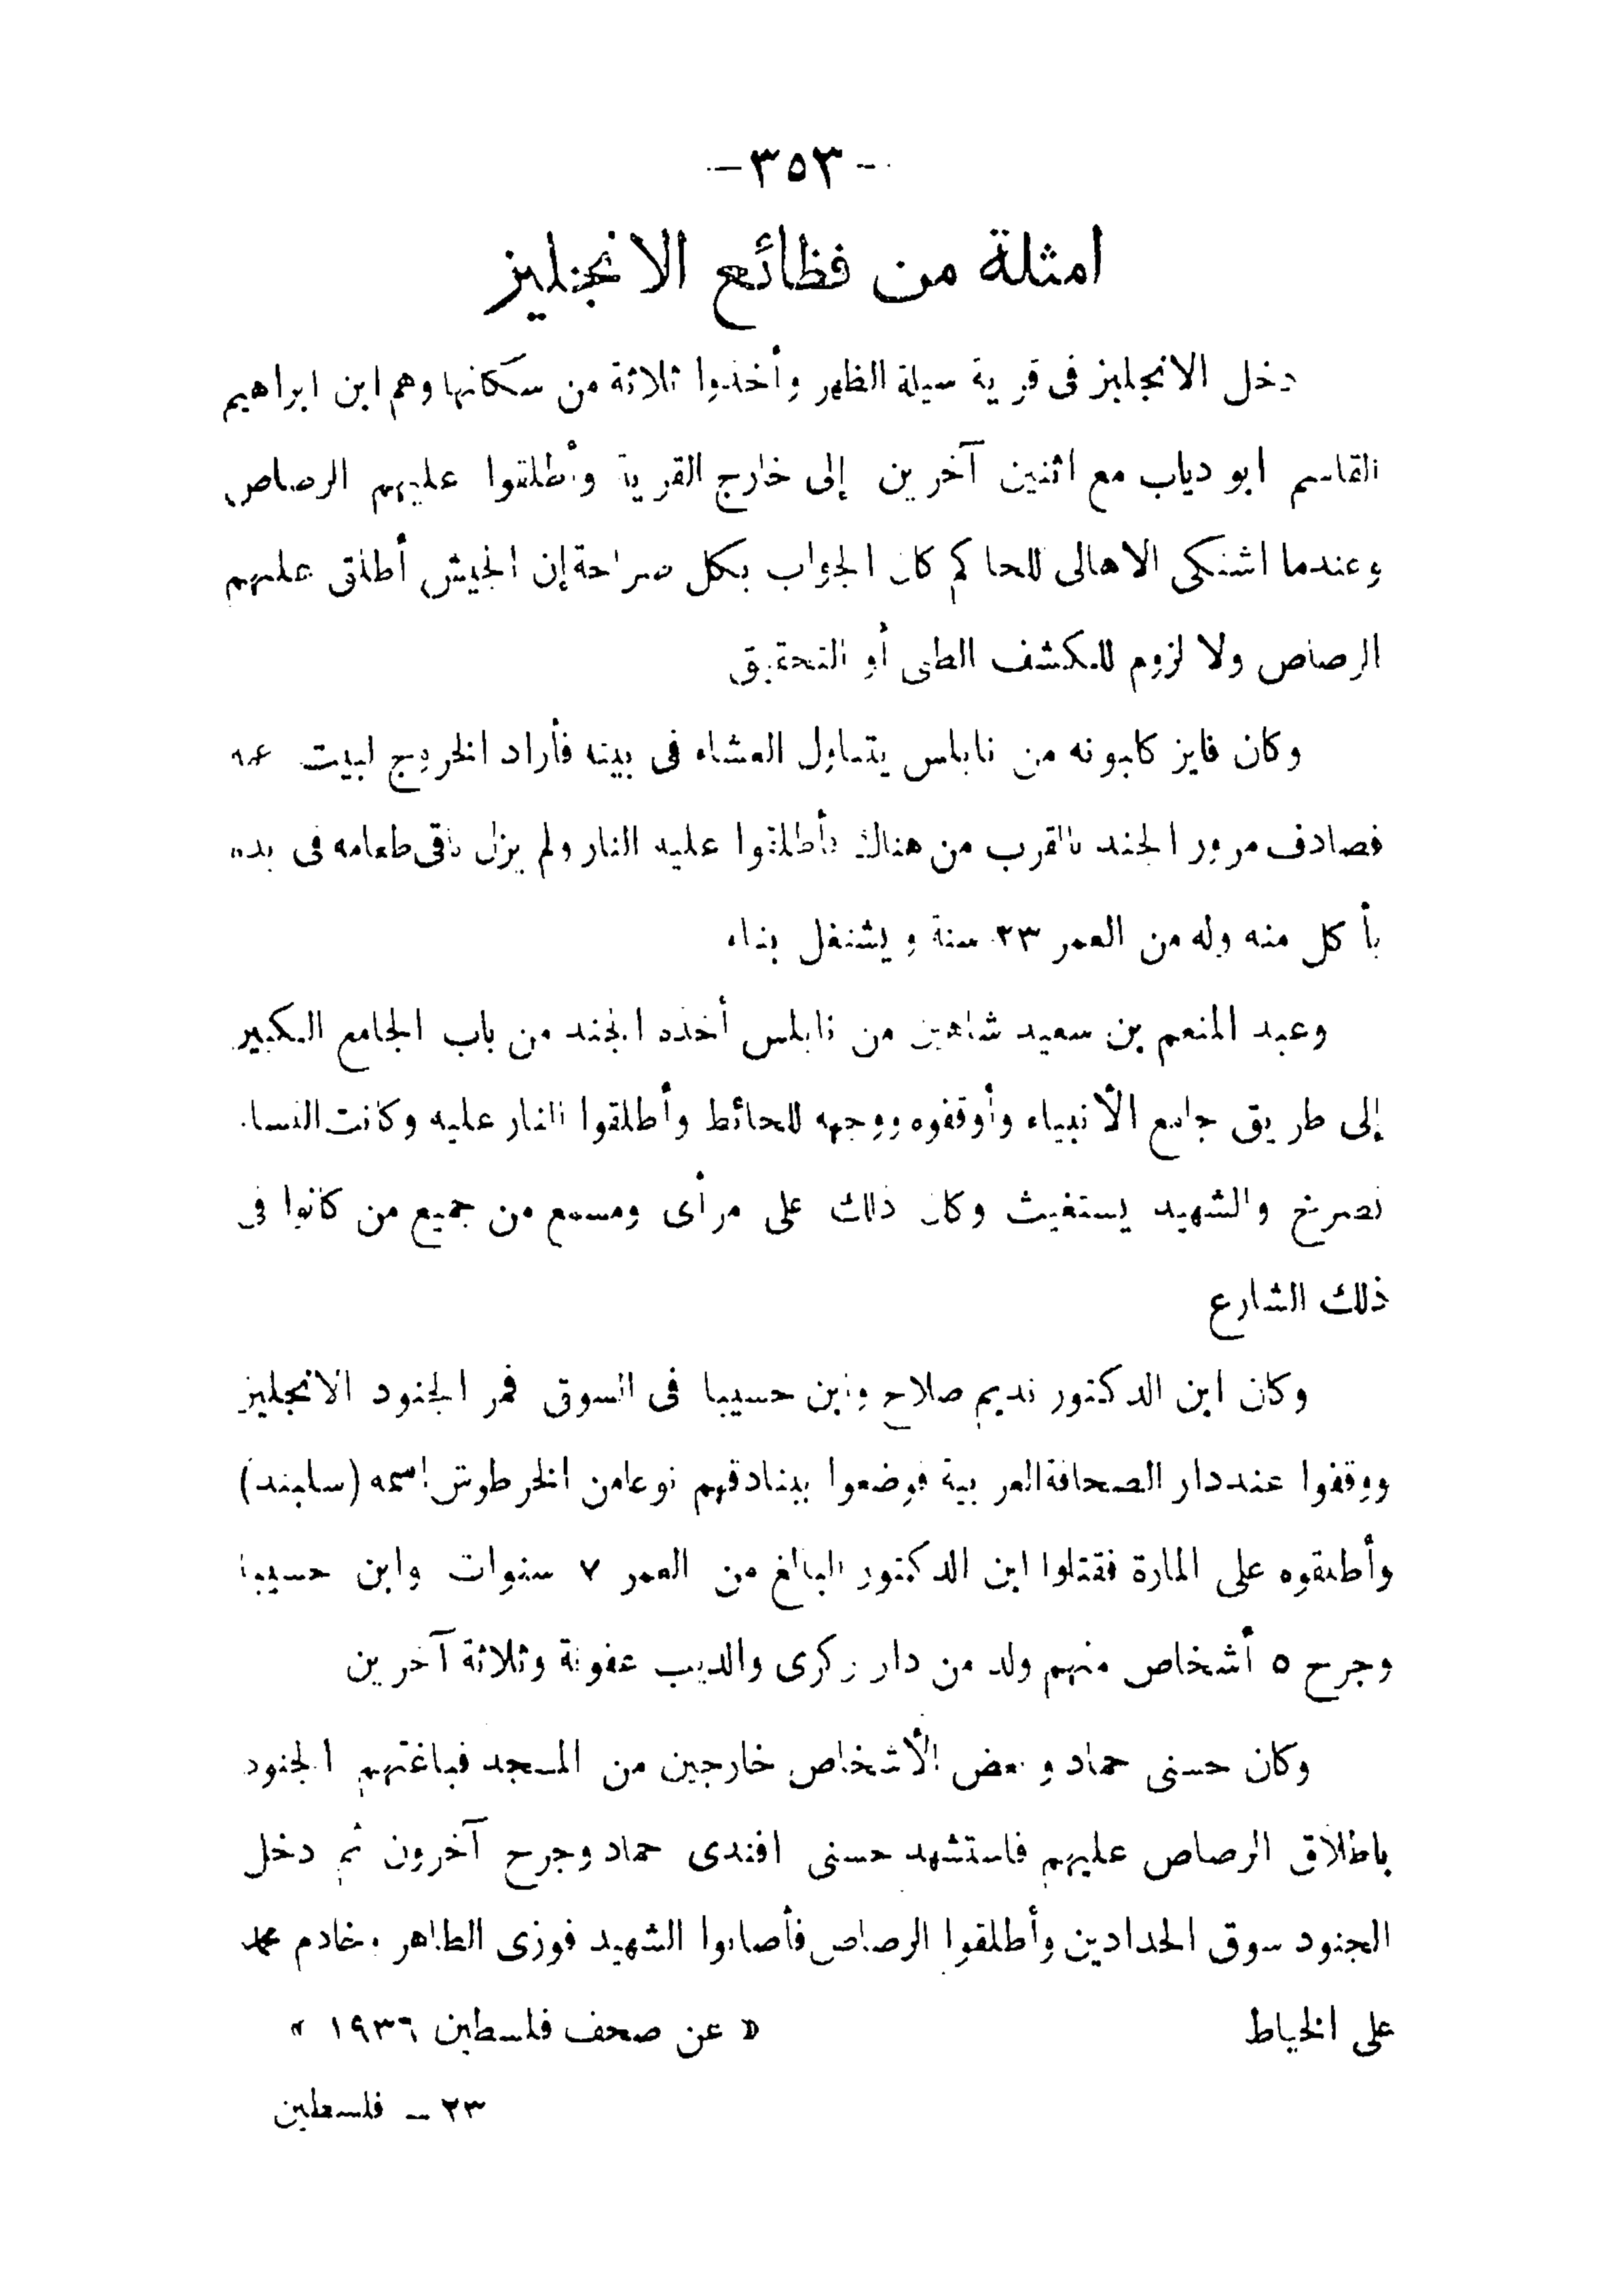 -٣٥٣-
امثلة من فظائع الانجليز
دخل الانجليز فى قرية سيلة الظهر وأخذوا ثلاثة من سكانها وهم ابن ابراهيم
القاسم ابو دياب مع اثنين آخرين إلى خارج القرية وأطلقوا عليهم الرصاص
وعندما اشتكى الاهالى للحاكم كان الجواب بكل صراحة إن الجيش أطلق عليهم
الرصاص ولا لزوم للكشف الطبى أو التحقيق
وكان فايز كلبونه من نابلس يتناول العشاء فى بيته فأراد الخروج لبيت عمه
فصادف مرور الجند بالقرب من هناك فأطلقوا عليه النار ولم يزل باقى طعامه فى يده
يأكل منه وله من العمر ٢٣ سنة ويشتغل بناء
وعبد المنعم بن سعيد شاهين من نابلس أخذه الجند من باب الجامع الكبير
إلى طريق جامع الأنبياء وأوقفوه ووجهه للحائط وأطلقوا النار عليه وكانت النساء
تصرخ والشهيد يستغيث وكان ذلك على مرأى ومسمع من جميع من كانوا فى
ذلك الشارع
وكان ابن الدكتور نديم صلاح وابن حسيبا فى السوق فمر الجنود الانجليز
ووقفوا عند دار الصحافة العربية فوضعوا ببنادقهم نوعا من الخرطوش اسمه (سلبند)
وأطلقوه على المارة فقتلوا ابن الدكتور البالغ من العمر ٧ سنوات وابن حسيبا
وجرح ٥ أشخاص منهم ولد من دار زكرى والديب عفونة وثلاثة آخرين
وكان حسنى حماد وبعض الأشخاص خارجين من المسجد فباغتهم الجنود
باطلاق الرصاص عليهم فاستشهد حسنى افندى حماد وجرح آخرون ثم دخل
الجنود سوق الحدادين وأطلقوا الرصاص فأصابوا الشهيد فوزى الطاهر وخادم محمد
على الخياط « عن صحف فلسطين ١٩٣٦ »
٢٣ — فلسطين